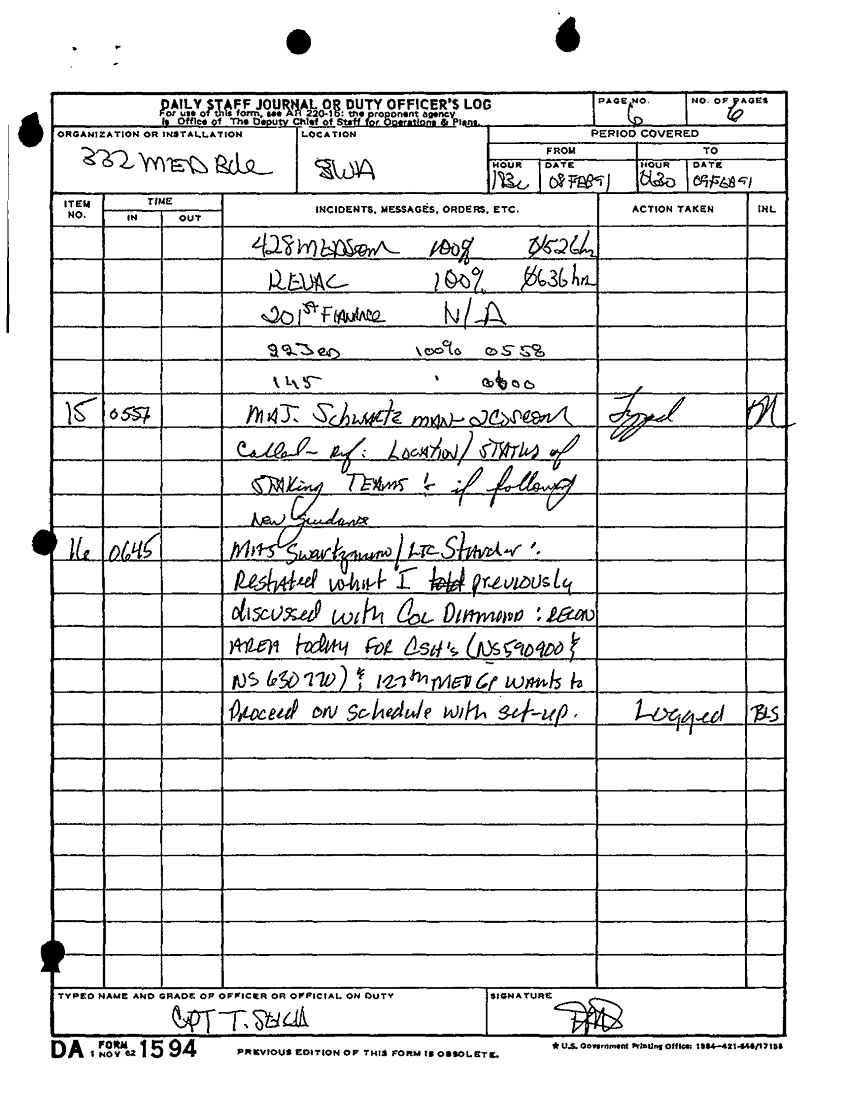 DAILY STAFF JOURNAL OR DUTY OFFICER'S LOG
For use of this form, see AR 220-15: the proponent agency
is Office of The Deputy Chief of Staff for Operations & Plans.
PAGE NO.
6
NO. OF PAGES
6
ORGANIZATION OR INSTALLATION
332 MED Bde
LOCATION
SWA
PERIOD COVERED
FROM
TO
HOUR
DATE
08 FEB 91
HOUR
DATE
09 FEB 91
ITEM NO.
TIME
IN
OUT
INCIDENTS, MESSAGES, ORDERS, ETC.
ACTION TAKEN
INL
428 MEDSOM 100% 0526hr
100% 0636hr
201st FINANCE N/A
100% 0558
145
15 0557 MAJ. Schwartz
Called - Ref: LOCATION/STATUS of
STAKING TEAMS & if following
New Guidance
16 0645
Restated what I told previously
discussed with COL DIAMOND: RECON
AREA today FOR CSH's (NS 590900 &
NS 630770) & 127th MED GP wants to
Proceed on schedule with set-up. Logged BLS
TYPED NAME AND GRADE OF OFFICER OR OFFICIAL ON DUTY
CPT T.
SIGNATURE
DA FORM 1 NOV 62 1594
PREVIOUS EDITION OF THIS FORM IS OBSOLETE.
★ U.S. Government Printing Office: